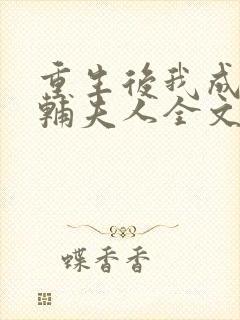 重生後我成
輔夫人全文
蝶香香